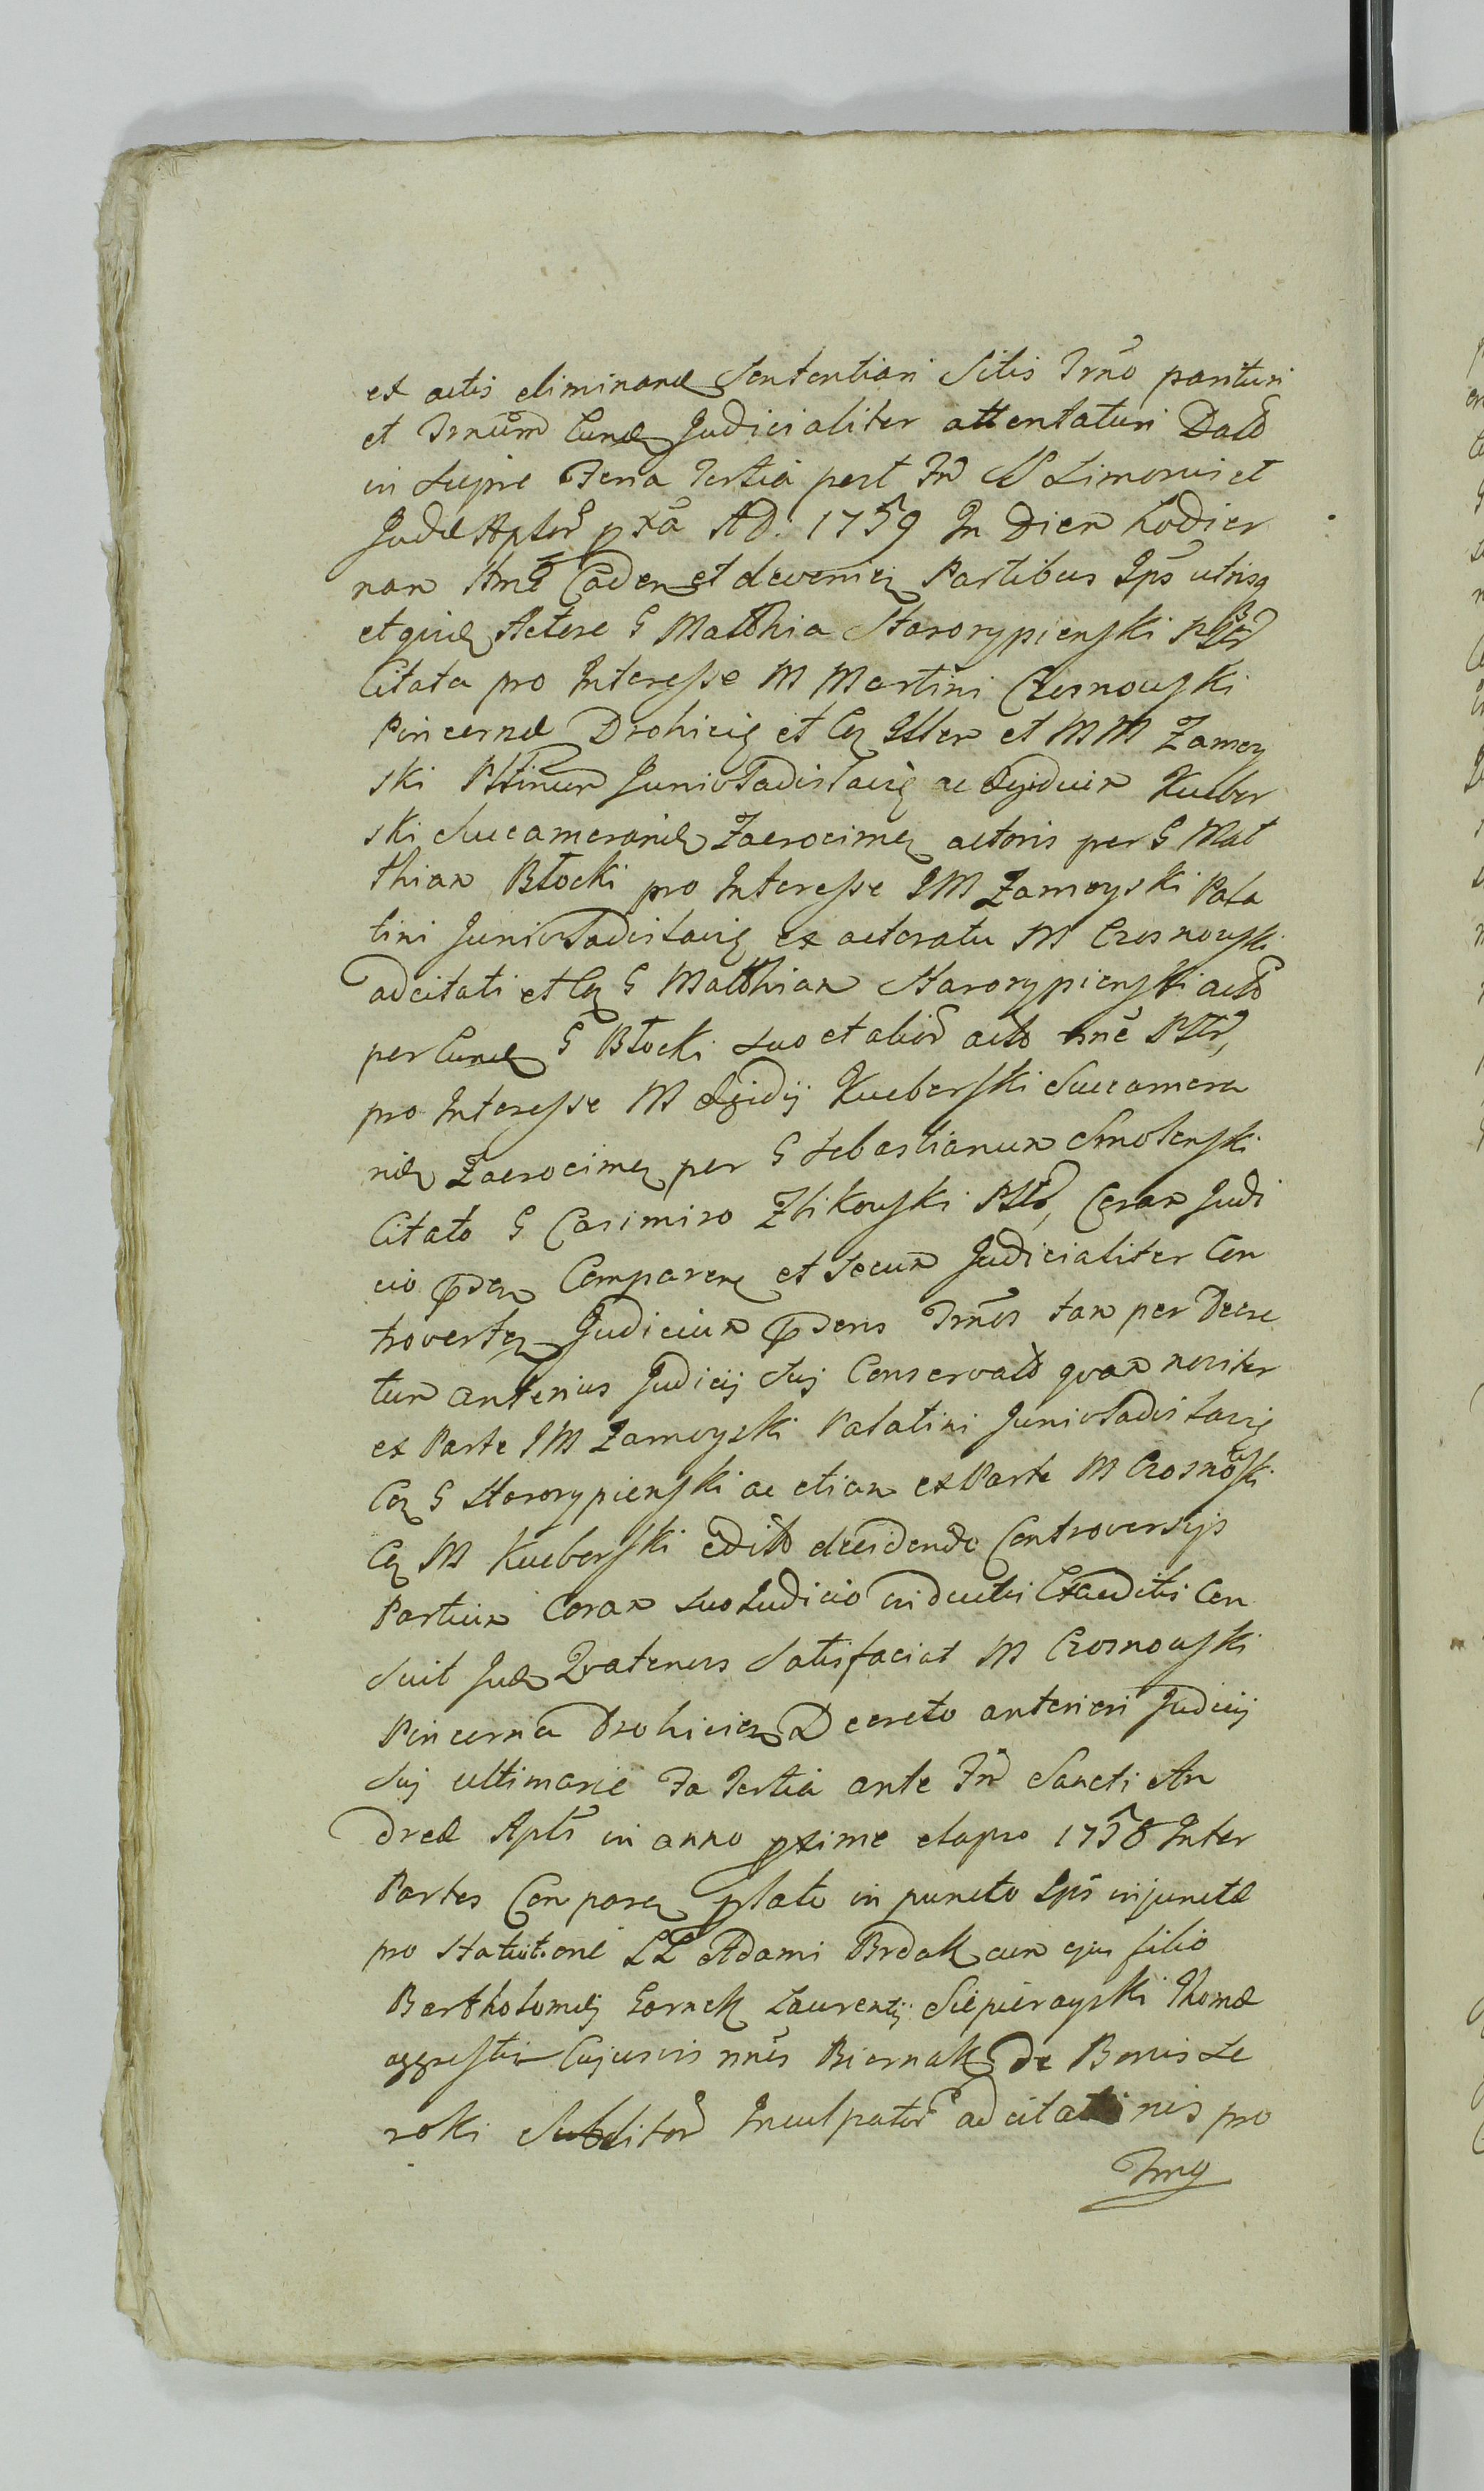 et actis eliminandæ Sententiari Litis Trño parituri
et Trnum Eundæ Judicialiter attentaturi Dato
in supre Feria Tertia post Fm SS Simonis et
Judæ Apłor pxa AD. 1759 In Diem hodier
nam Caden et devenien Partibus Ips utrisq
et quidæ Actore G Matthia Starorypienski
Citata pro Interesse M Martini Crosnowski
Pincernæ Drohicie et Cen et M M Zamoy
ski Junivladislavie ac Egidium Kucbor
ski Succamerariæ Zacrocimen actoris per G Mat
thiam Błocki pro Interesse IM Zamoyski Pala
tini Junivladislavie ex actoratu M Crosnowski
adcitati et Cen G Matthiam Starorypienski acto
per Eundæ G Błocki suo et alior acto nñe
pro Interesse M Egidij Kucborski Succamera
riæ Zacrocimen per G Sebastianum Smolenski
Citato G Casimiro Zbikowski Coram Judi
cio pden Comparen et secum Judicialiter Con
troverten Judicium pdens Trños tam per Decre
tum anterius Judicij Sui Conservato quam noviter
ex Parte IM Zamoyski Palatini Junivladislavie
Cen G Starorypienski ac etiam ex Parte M Crosnowski
Cen M Kucborski edito decidendo Controversijs
Partium Coram suo Judicio inductis Exauditis Cen
suit Judæ Quatenus Satisfaciat M Crosnowski
Pincerna Drohicien Decreto anteriori Judicij
Sui ultimarie Fa Tertia ante Fm Sancti An
dreæ Apłi in anno pxime elapso 1758 Inter
Partes Comparen plato in puncto Ips injunctæ
pro statutione LL Adami Brdak cum ejus filio
Bartholomæi Gornck Laurentij Siepierayski Thomæ
aggrestis Cujusvis nñis Biernak De Bonis Se
roki Subditor Inculpator adcitationis pro
Trng